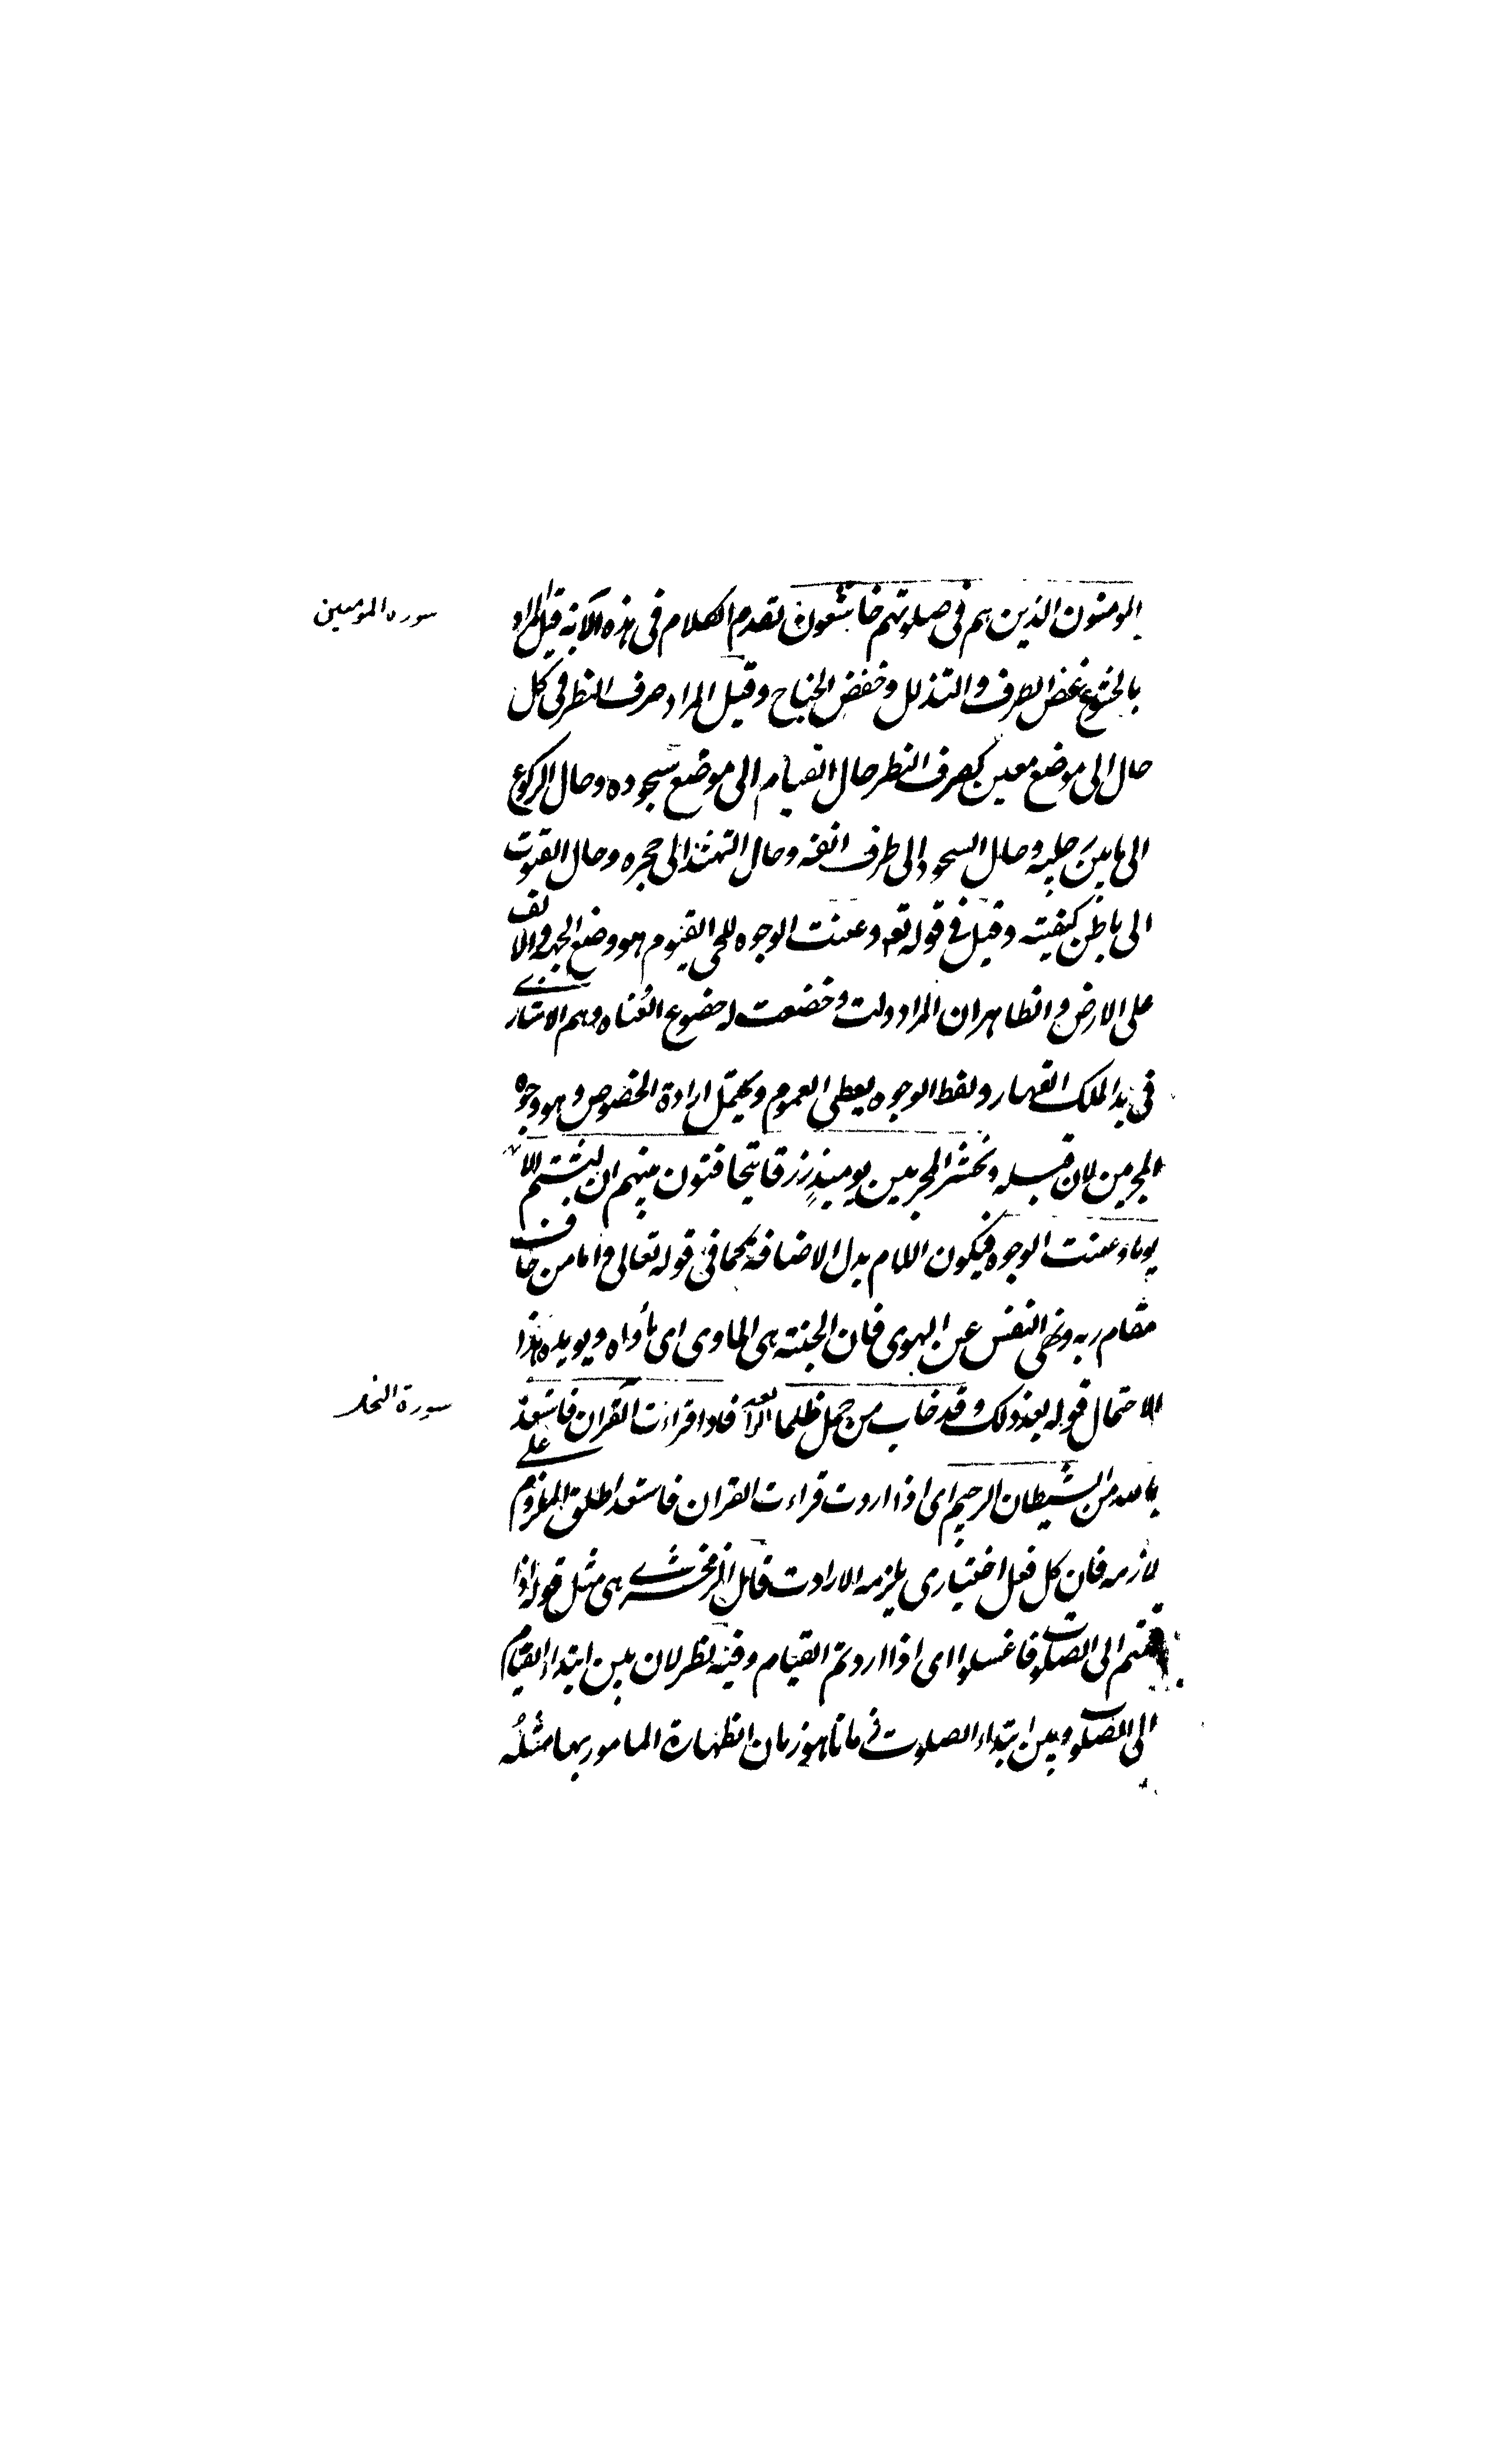 المومنون الذين هم فى صلوتهم خاشعون تقدم الكلام فى هذه الآية قيل المراد
سوره المومنين
بالخشوع غض الطرف والتذلل وخفض الجناح وقيل المراد صرف النظر فى كل
حال الى موضع معين كصرف النظر حال القيام الى موضع سجوده وحال الركوع
الى ما بين رجليه وحال السجود الى طرف انفه وحال التشهد الى حجره وحال القنوت
الى باطن كفيته وقيل فى قوله تعه وعنت الوجوه للحى القيوم هو وضع الجبهة والانف
على الارض والظاهر ان المراد ذلت وخضعت له خضوع العناه وهم الاسارى
فى يد الملك القهار ولفظ الوجوه يعطى العموم ويحتمل ارادة الخصوص وهو وجوه
المجرمين لان قبله ونحشر المجرمين يومئذٍ زرقا يتخافتون بينهم ان لبثتم الا
يوما وعنت الوجوه فيكون اللام بدل الاضافة كما فى قوله تعالى واما من خاف
مقام ربه ونهى النفس عن الهوى فان الجنته هى الماوى اى مأواه ويويده هذا
الاحتمال قوله بعد ذلك وقد خاب من حمل ظلما فاذا قرات القران فاستعذ
سورة النحل
بالله من الشيطان الرجيم اى اذا اردت قراءت القران فاستعد اطلق الملزوم على
لازمه فان كل فعل اختيارى يلزمه الارادت قال الزمخشرى هى مثل قوله اذا
قمتم الى الصلوت فاغسلوا اى اذا اردتم القيام وفيه نظر لان بين ابتداء القيام
الى الصلوت وبين ابتداء الصلوت زمانا هو زمان الطهارة المامور بها مثله